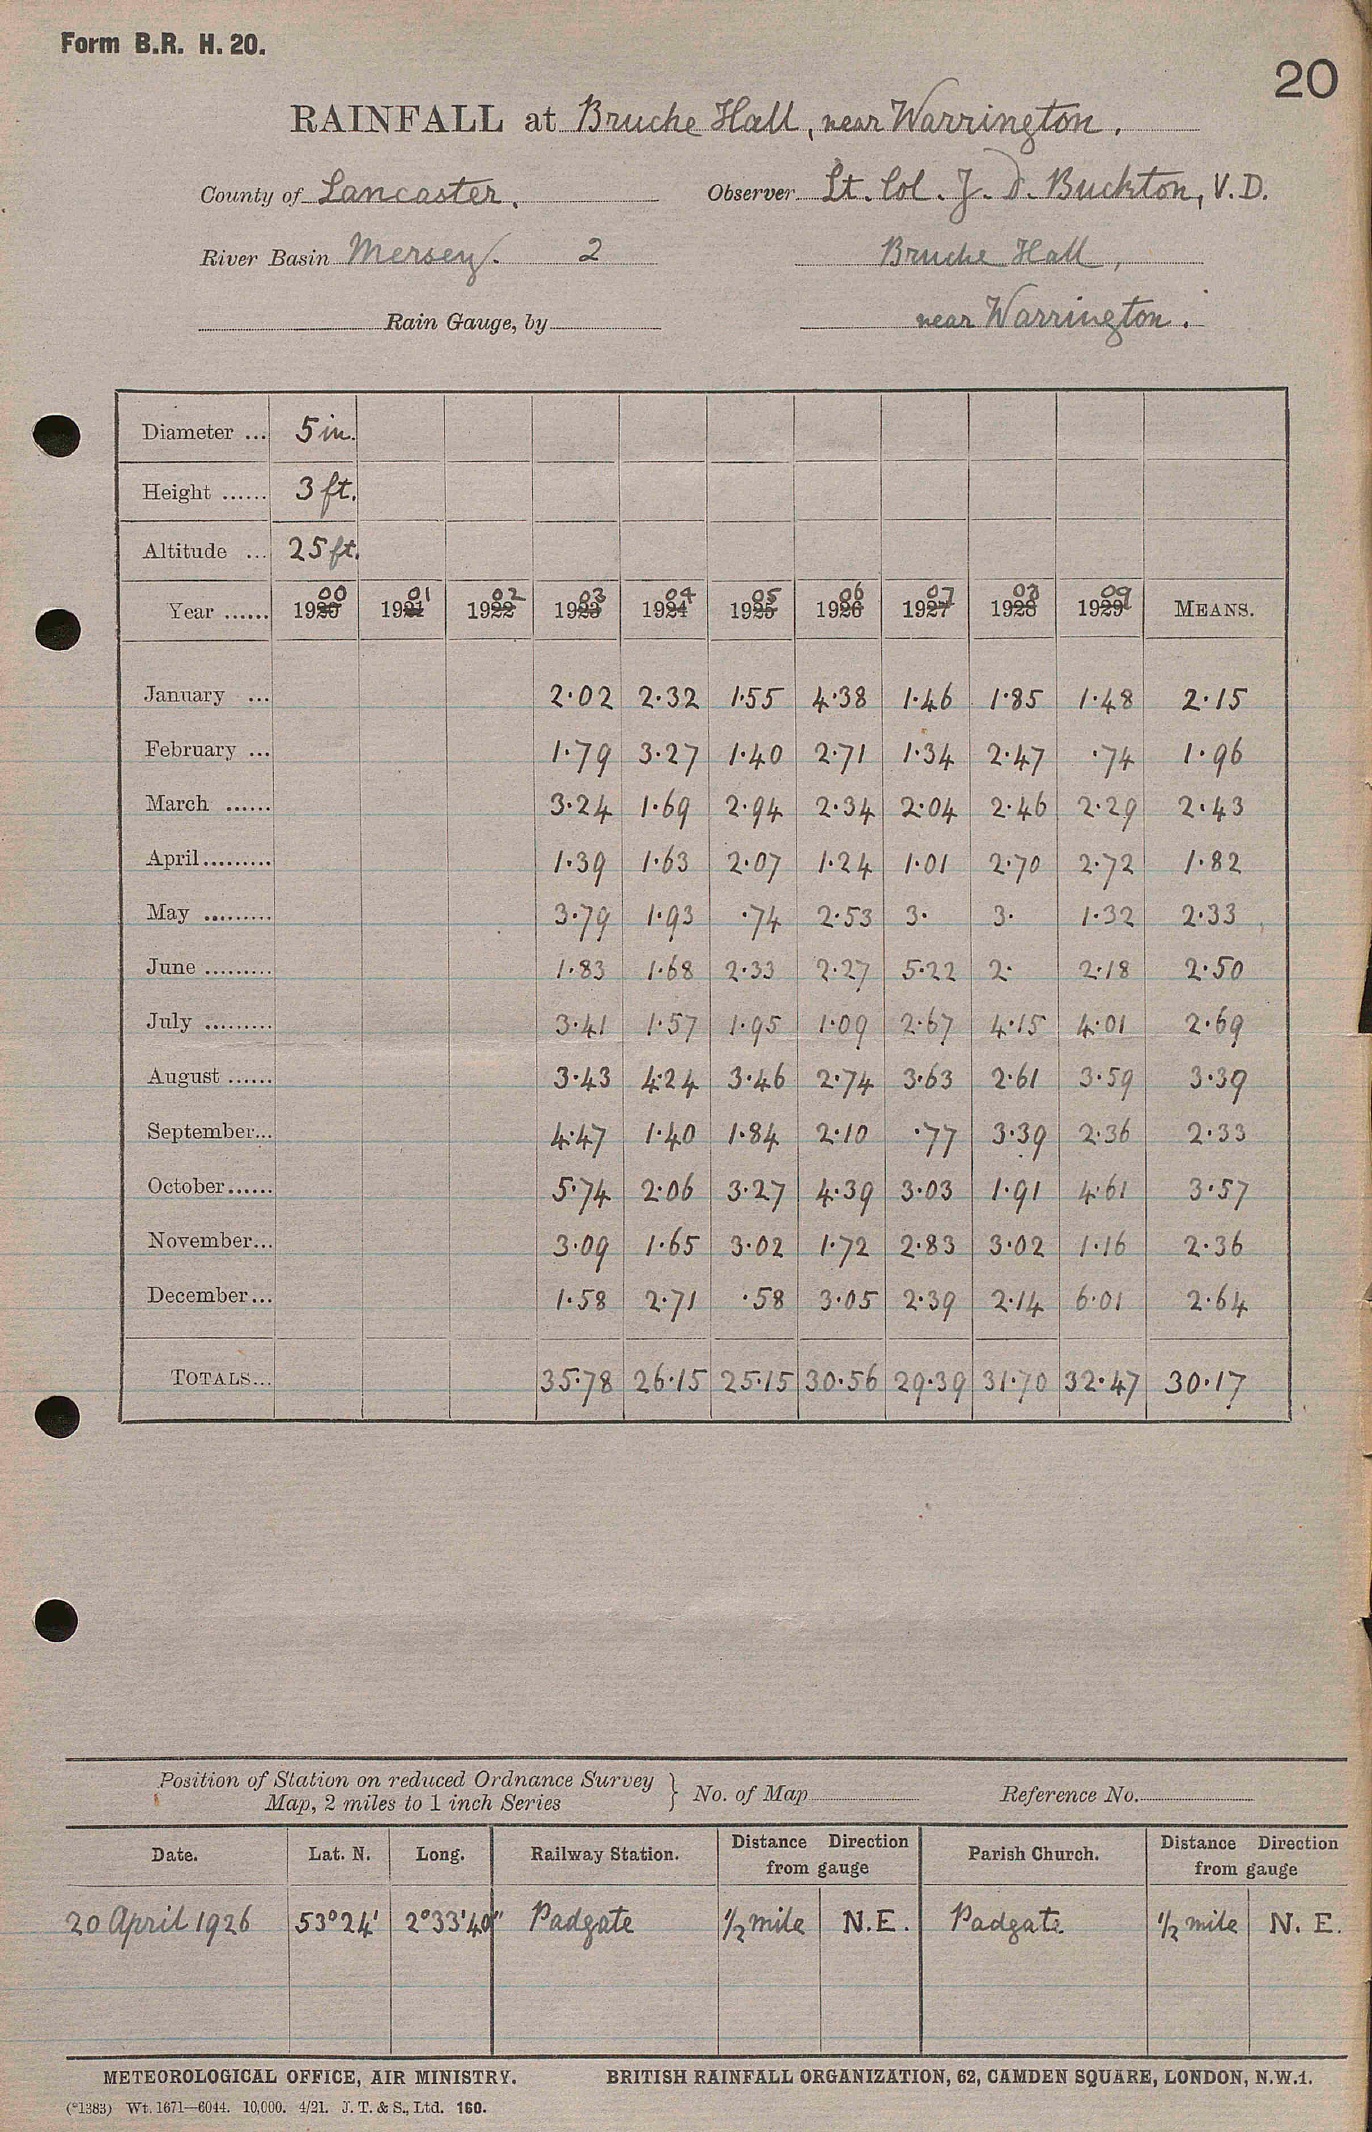 Form B.R. H. 20.
20
RAINFALL at Bruche Hall, near Warrington.
County of Lancaster. Observer Lt. Col. J. D. Buckton, V.D.
River Basin Mersey. 2 Bruche Hall,
Rain Gauge, by near Warrington.
Diameter ... 5 in.
Height ...... 3 ft.
Altitude ... 25 ft.
00 01 02 03 04 05 06 07 08 09
Year ...... 1920 1921 1922 1923 1924 1925 1926 1927 1928 1929 MEANS.
January ... 2.02 2.32 1.55 4.38 1.46 1.85 1.48 2.15
February ... 1.79 3.27 1.40 2.71 1.34 2.47 .74 1.96
March ...... 3.24 1.69 2.94 2.34 2.04 2.46 2.29 2.43
April......... 1.39 1.63 2.07 1.24 1.01 2.70 2.72 1.82
May ......... 3.79 1.93 .74 2.53 3. 3. 1.32 2.33
June ......... 1.83 1.68 2.33 2.27 5.22 2. 2.18 2.50
July ......... 3.41 1.57 1.95 1.09 2.67 4.15 4.01 2.69
August ...... 3.43 4.24 3.46 2.74 3.63 2.61 3.59 3.39
September... 4.47 1.40 1.84 2.10 .77 3.39 2.36 2.33
October...... 5.74 2.06 3.27 4.39 3.03 1.91 4.61 3.57
November... 3.09 1.65 3.02 1.72 2.83 3.02 1.16 2.36
December... 1.58 2.71 .58 3.05 2.39 2.14 6.01 2.64
TOTALS... 35.78 26.15 25.15 30.56 29.39 31.70 32.47 30.17
Position of Station on reduced Ordnance Survey
Map, 2 miles to 1 inch Series } No. of Map Reference No.
Date. Lat. N. Long. Railway Station. Distance Direction from gauge Parish Church. Distance Direction from gauge
20 April 1926 53°24' 2°33'40" Padgate 1/2 mile N.E. Padgate 1/2 mile N. E.
METEOROLOGICAL OFFICE, AIR MINISTRY. BRITISH RAINFALL ORGANIZATION, 62, CAMDEN SQUARE, LONDON, N.W.1.
(*1383) Wt. 1671—6044. 10,000. 4/21. J. T. & S., Ltd. 160.